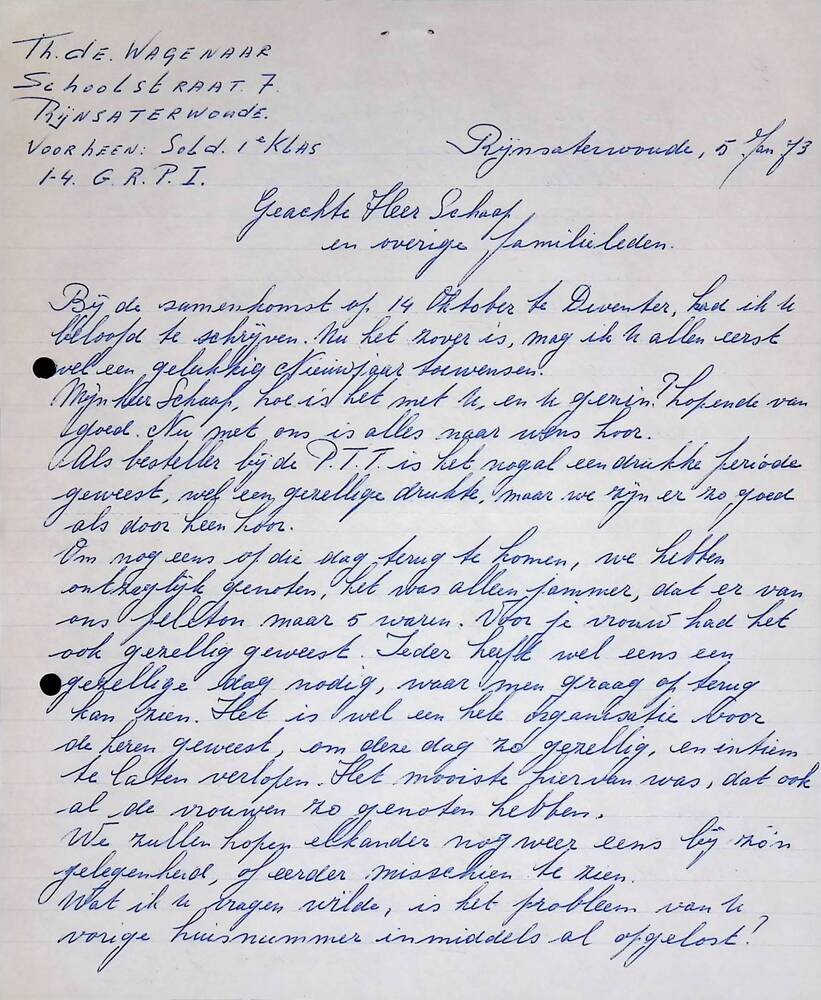 Th. de. WAGENAAR
SchoolSTRAAT. 7.
RijnSATERWOUDE.
VOORHEEN: Sold. 1e KLAS
1-4. G. R. P. I.
Rijnsaterwoude, 5 Jan 73
Geachte Heer Schaap
en overige familieleden.
Bij de samenkomst op 14 Oktober te Deventer, had ik U
beloofd te schrijven. Nu het zover is, mag ik U allen eerst
wel een gelukkig Nieuwjaar toewensen.
Mijnheer Schaap, hoe is het met U, en U gezin? hopende van
goed. Nu met ons is alles naar wens hoor.
Als besteller bij de P.T.T. is het nogal een drukke periode
geweest, wel een gezellige drukte, maar we zijn er zo goed
als door heen hoor.
Om nog eens op die dag terug te komen, we hebben
ontzeglijk genoten, het was alleen jammer, dat er van
ons peleton maar 5 waren. Voor je vrouw had het
ook gezellig geweest. Ieder heeft wel eens een
gezellige dag nodig, waar men graag op terug
kan zien. Het is wel een hele organisatie voor
de heren geweest, om deze dag zo gezellig, en intiem
te laten verlopen. Het mooiste hiervan was, dat ook
al de vrouwen zo genoten hebben.
We zullen hopen elkander nog weer eens bij zo'n
gelegenheid, of eerder misschien te zien.
Wat ik U vragen wilde, is het probleem van U
vorige huisnummer inmiddels al opgelost?